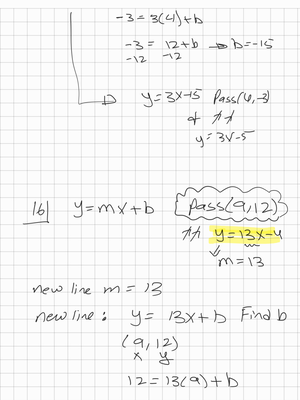 -3 = 3(4)+b
-3 = 12+b → b=-15
-12 -12
y=3x-15 Pass(4,-3)
&
y=3x-5
16| y=mx+b Pass(9,12)
y=13x-4
m=13
new line m = 13
new line: y= 13x+b Find b
(9,12)
x y
12=13(9)+b